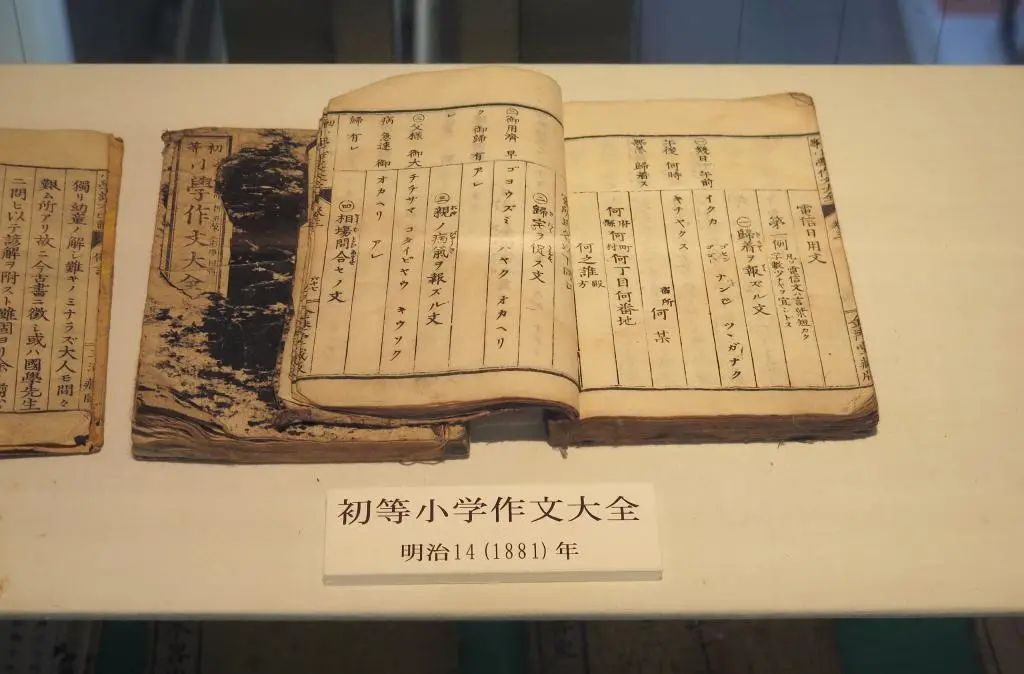 電信日用文
第一例
㊀歸着ヲ報ズル文
㊀幾日 午前
イクカ ゴゼン ナンジ ツヽガナク
午後 何時
無事 歸着ス
キチヤクス
宿所 何某
何府縣何町何丁目何番地
何之誰殿方
㊁歸宅ヲ促ス文
㊁御用濟 早
ゴヨウズミ ハヤク オカヘリ
ク 御歸 有
アレ
レ
㊂親ノ病氣ヲ報ズル文
㊂父樣 御大
チチザマ ゴタイビヤウ キウソク
病 急速 御
オカヘリ アレ
歸 有レ
㊃相場問合セノ文
初等小學作文大全
獨リ幼童ノ解シ難キノミナラズ大人モ間々
難ム所アリ故ニ今古書ニ徵シ或ハ國學先生
ニ問ヒ以テ諺解ヲ附スト雖固ヨリ
初等小学作文大全
明治14(1881)年